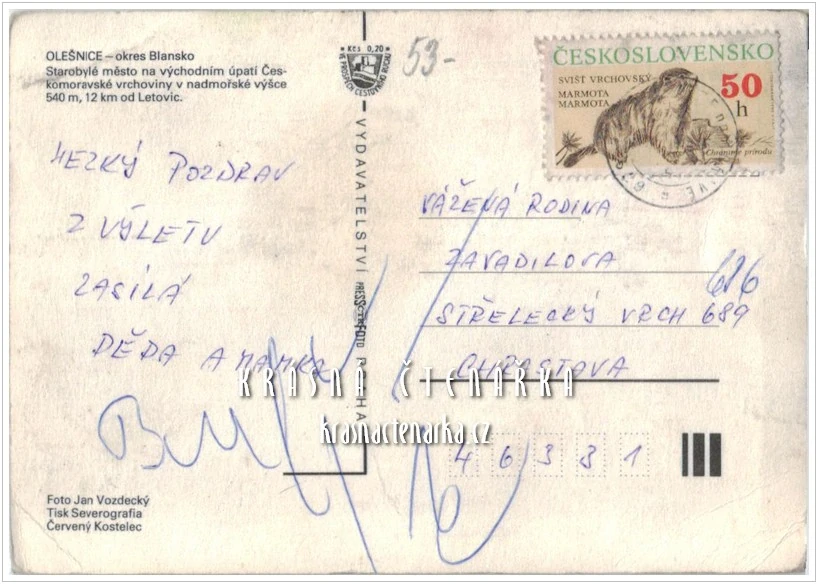 OLEŠNICE – okres Blansko
Starobylé město na východním úpatí Čes-
komoravské vrchoviny v nadmořské výšce
540 m, 12 km od Letovic.
Kčs 0,20
VE PROSPĚCH CESTOVNÍHO RUCHU
53-
ČESKOSLOVENSKO
SVIŠŤ VRCHOVSKÝ
MARMOTA
MARMOTA
50
h
Chraňme prírodu
HEZKÝ POZDRAV
Z VÝLETU
ZASÍLÁ
DĚDA A MAMKA
VYDAVATELSTVÍ PRESSFOTO PRAHA
VÁŽENÁ RODINA
ZAVADILOVA
686
STŘELECKÝ VRCH 689
CHRASTAVA
KRÁSNÁ ČTENÁŘKA
krasnactenarka.cz
46331
Foto Jan Vozdecký
Tisk Severografia
Červený Kostelec